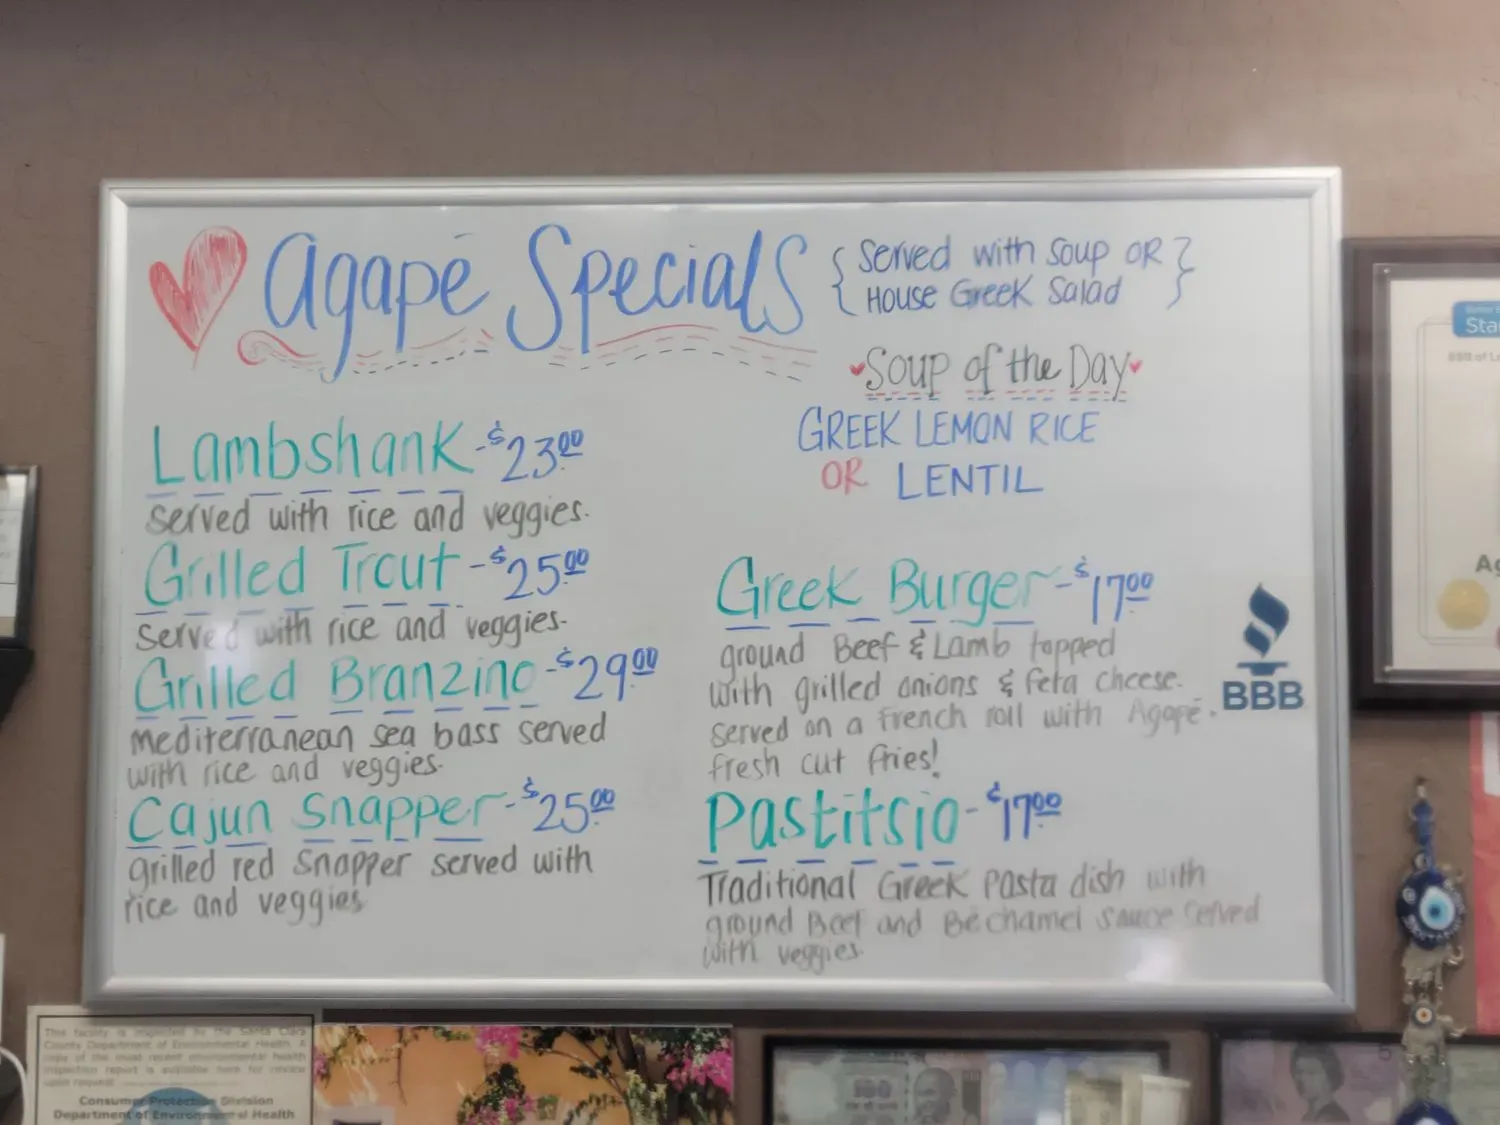 Agapē Specials
{ Served with Soup OR }
{ House Greek Salad }
Soup of the Day
GREEK LEMON RICE
OR LENTIL
Lambshank - $23.00
served with rice and veggies.
Grilled Trout - $25.00
served with rice and veggies.
Grilled Branzino - $29.00
mediterranean sea bass served
with rice and veggies.
Cajun Snapper - $25.00
grilled red Snapper served with
rice and veggies
Greek Burger - $17.00
ground Beef & Lamb topped
with grilled onions & feta cheese.
served on a french roll with Agapē.
fresh cut fries!
Pastitsio - $17.00
Traditional Greek Pasta dish with
ground Beef and Béchamel Sauce Served
with veggies.
BBB
Sta
Ag
This facility is inspected by the Santa Clara
County Department of Environmental Health. A
copy of the most recent environmental health
inspection report is available here for review
upon request.
Consumer Protection Division
Department of Environmental Health